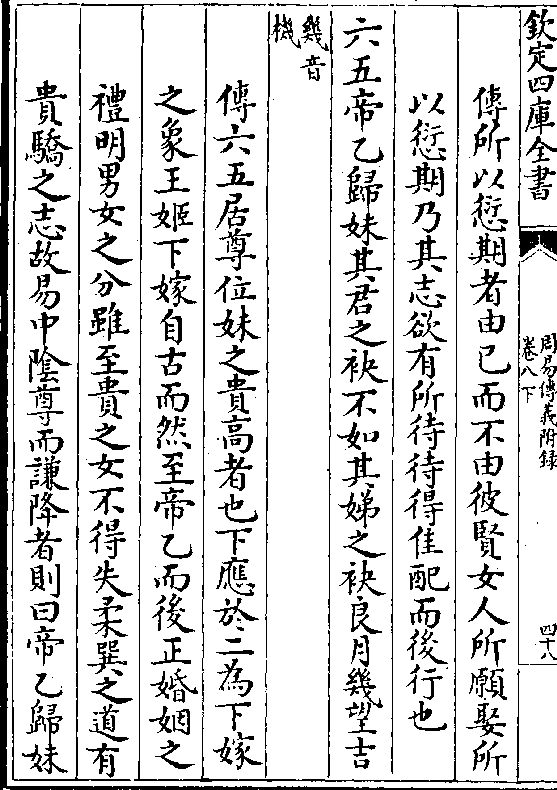 欽定四庫全書
周易傳義附録
卷八下
四十八
傳所以愆期者由已而不由彼賢女人所願娶所
以愆期乃其志欲有所待待得佳配而後行也
六五帝乙歸妹其君之袂不如其娣之袂良月幾望吉
幾音
機
傳六五居尊位妹之貴高者也下應於二為下嫁
之象王姬下嫁自古而然至帝乙而後正婚姻之
禮明男女之分雖至貴之女不得失柔巽之道有
貴驕之志故易中陰尊而謙降者則曰帝乙歸妹